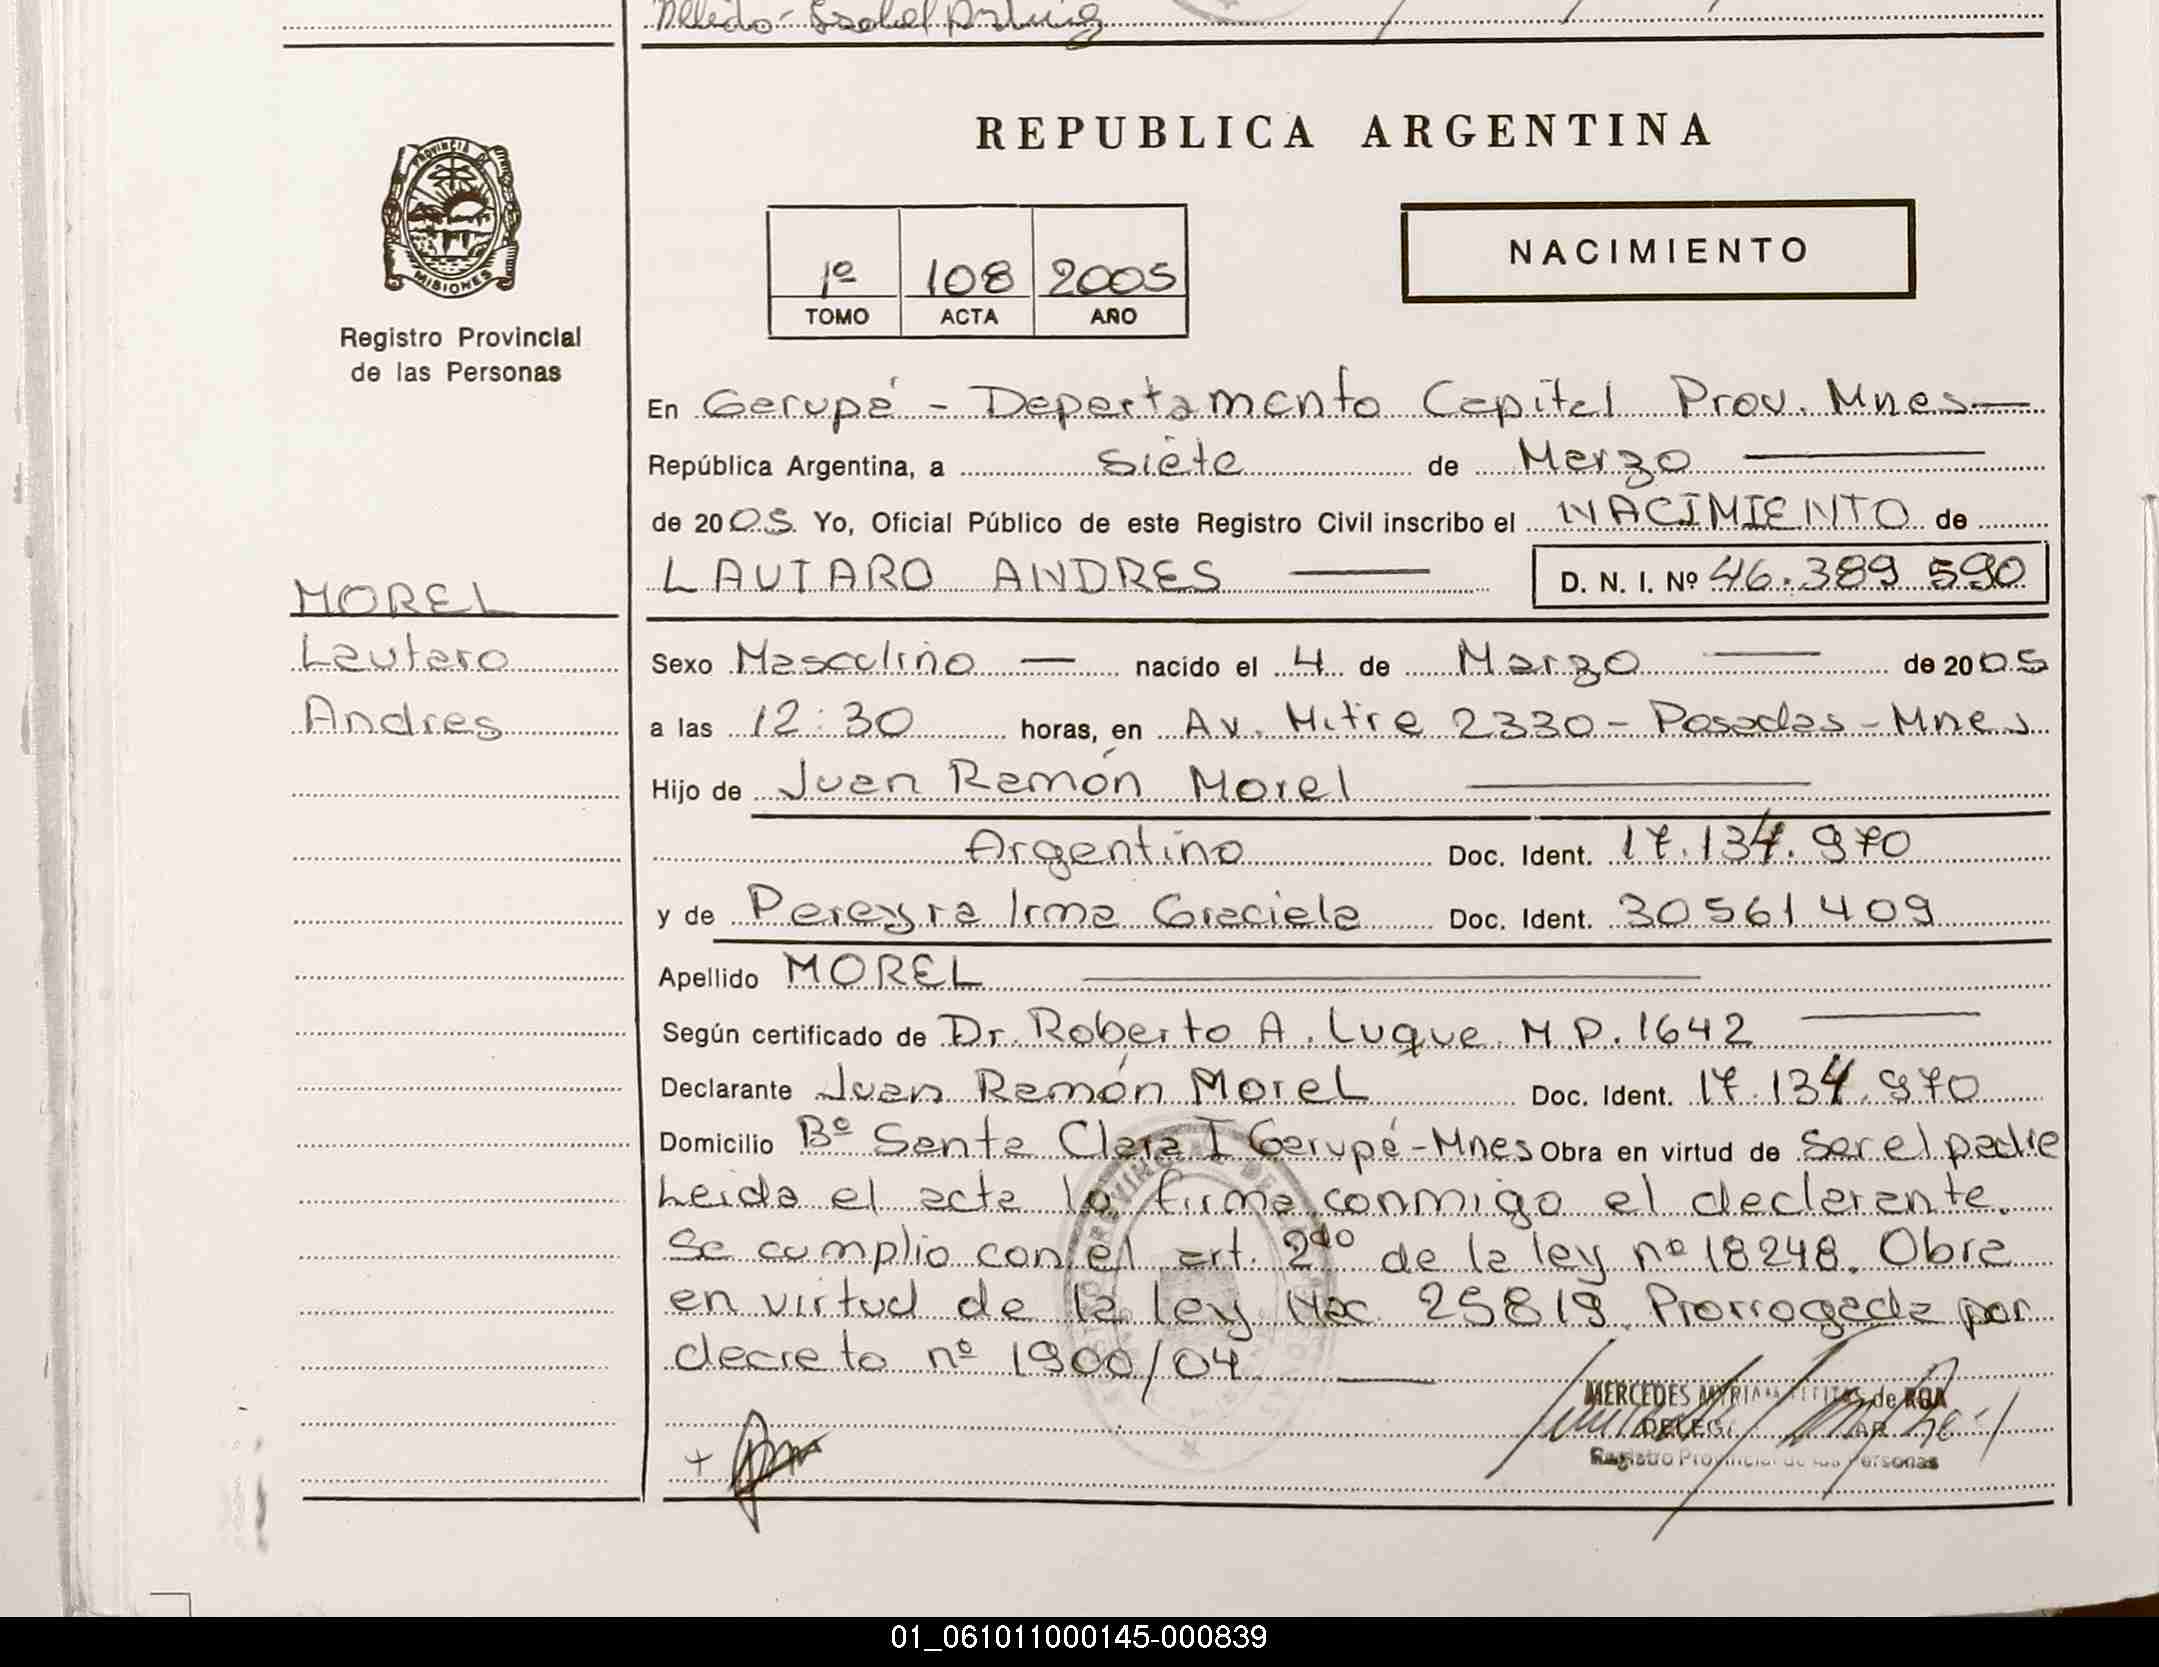 REPUBLICA ARGENTINA
PROVINCIA DE
MISIONES
Registro Provincial
de las Personas
NACIMIENTO
1º 108 2005
TOMO ACTA AÑO
En Garupá - Departamento Capital Prov. Mnes
República Argentina, a siete de Marzo
de 2005. Yo, Oficial Público de este Registro Civil inscribo el NACIMIENTO de
LAUTARO ANDRES D. N. I. Nº 46.389.590
MOREL
Lautaro
Andres
Sexo Masculino nacido el 4 de Marzo de 2005
a las 12:30 horas, en Av. Mitre 2330 - Posadas - Mnes
Hijo de Juan Ramón Morel
Argentino Doc. Ident. 17.134.970
y de Pereyra Irma Graciela Doc. Ident. 30561409
Apellido MOREL
Según certificado de Dr. Roberto A. Luque M.P. 1642
Declarante Juan Ramón Morel Doc. Ident. 17.134.970
Domicilio Bº Santa Clara I Garupá-Mnes Obra en virtud de ser el padre
Leida el acta la firma conmigo el declarante.
Se cumplio con el art. 2do de la ley nº 18248. Obra
en virtud de la ley Nac. 25819. Prorrogada por
decreto nº 1900/04
MERCEDES de ROA
Registro Provincial de las Personas
01_061011000145-000839